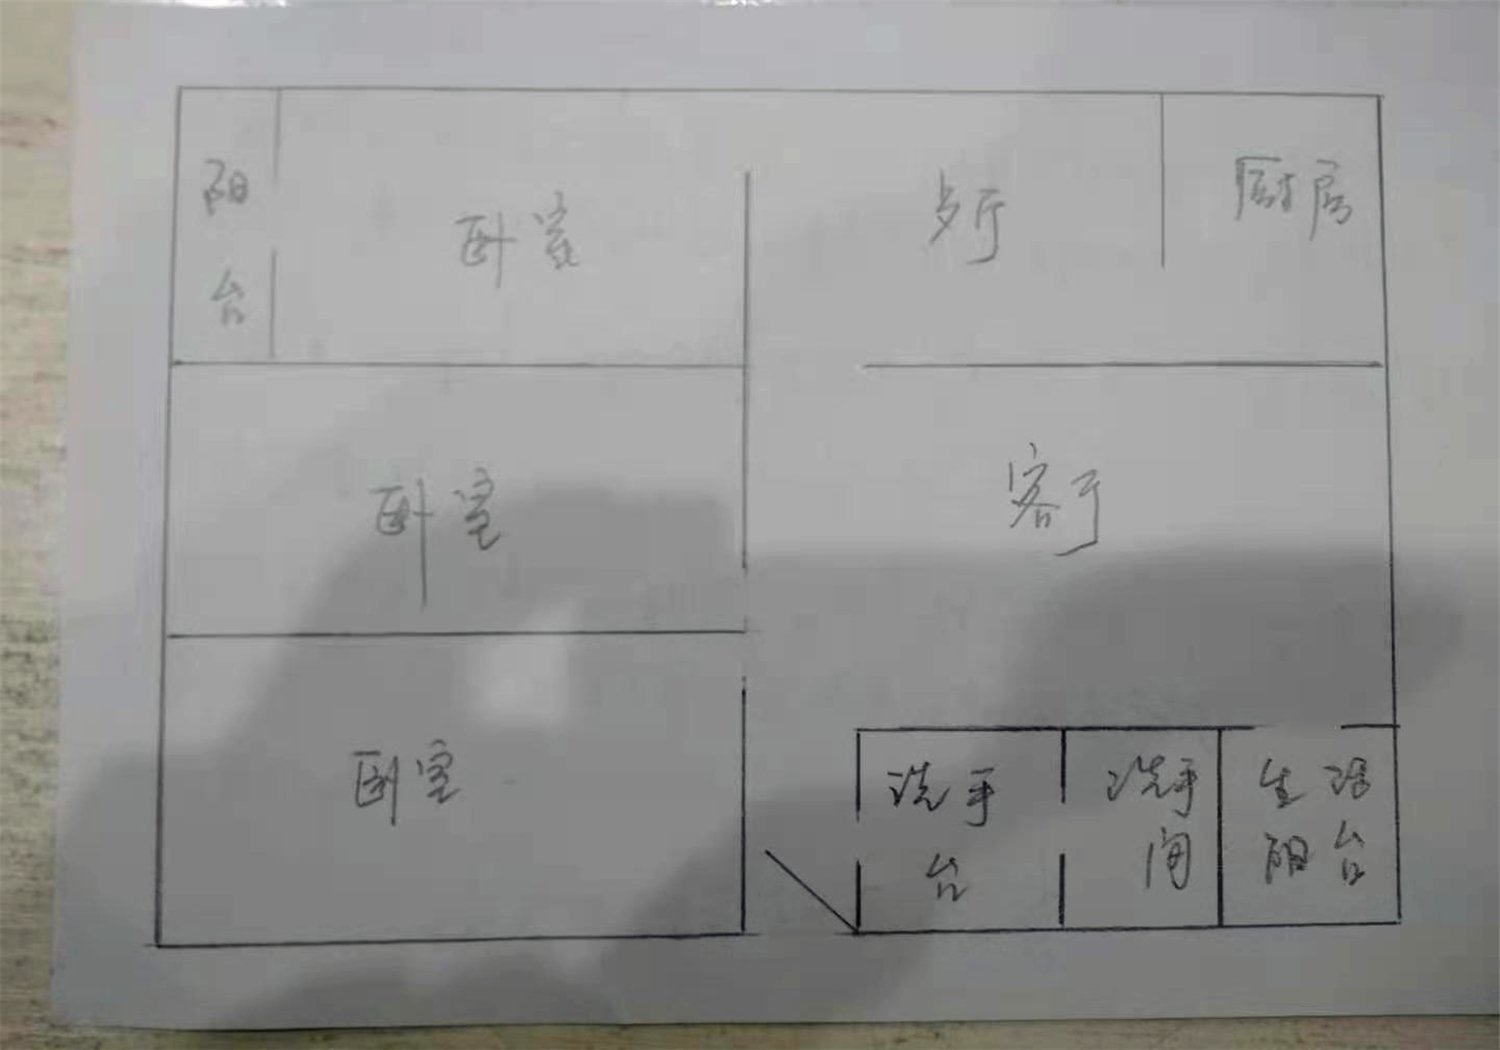 阳台
卧室
歺厅
厨房
卧室
客厅
卧室
洗手台
洗手间
生活阳台